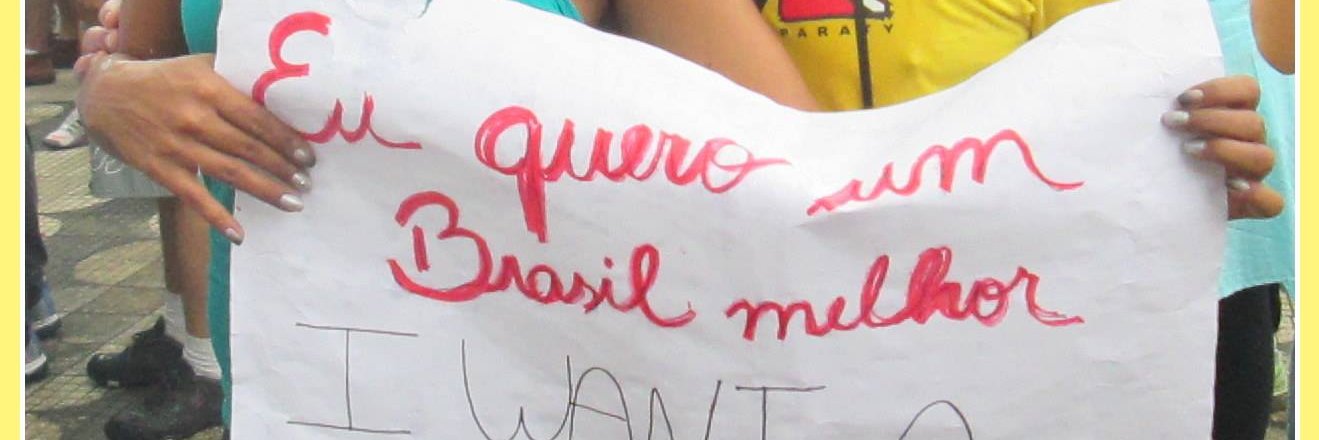 PARATY
Eu quero um
Brasil melhor
I WANT